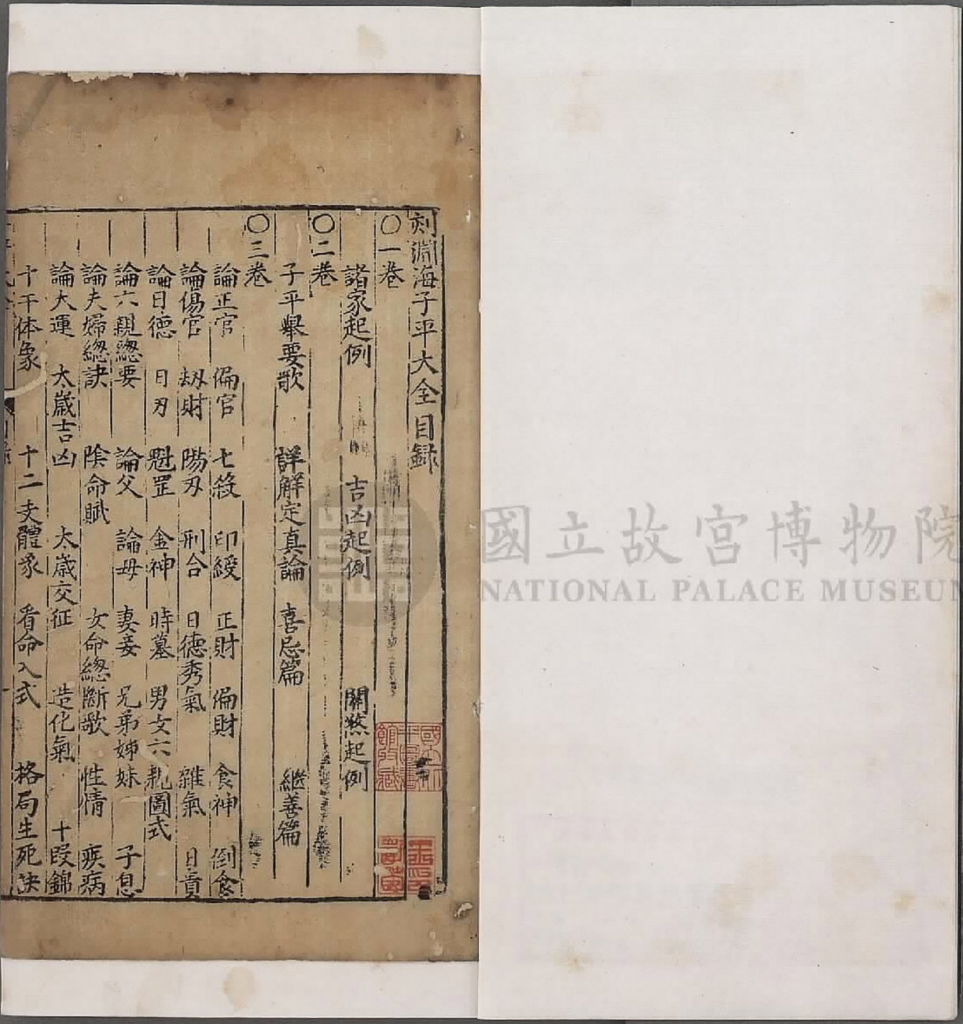 刻淵海子平大全目録
〇一卷
諸家起例　吉凶起例　關煞起例
〇二卷
子平舉要歌　詳解定真論　喜忌篇　継善篇
〇三卷
論正官　偏官　七殺　印綬　正財　偏財　食神　倒食
論傷官　劫財　陽刃　刑合　日德秀氣　雜氣　日貴
論日德　日刃　魁罡　金神　時墓　男女六親圖式
論六親總要　論父　論母　妻妾　兄弟姊妹　子息
論夫婦總訣　陰命賦　女命總断歌　性情　疾病
論大運　太歲吉凶　太歲交征　造化氣　十段錦
十干体象　十二支體象　看命入式　格局生死訣
國立故宮博物院
NATIONAL PALACE MUSEUM